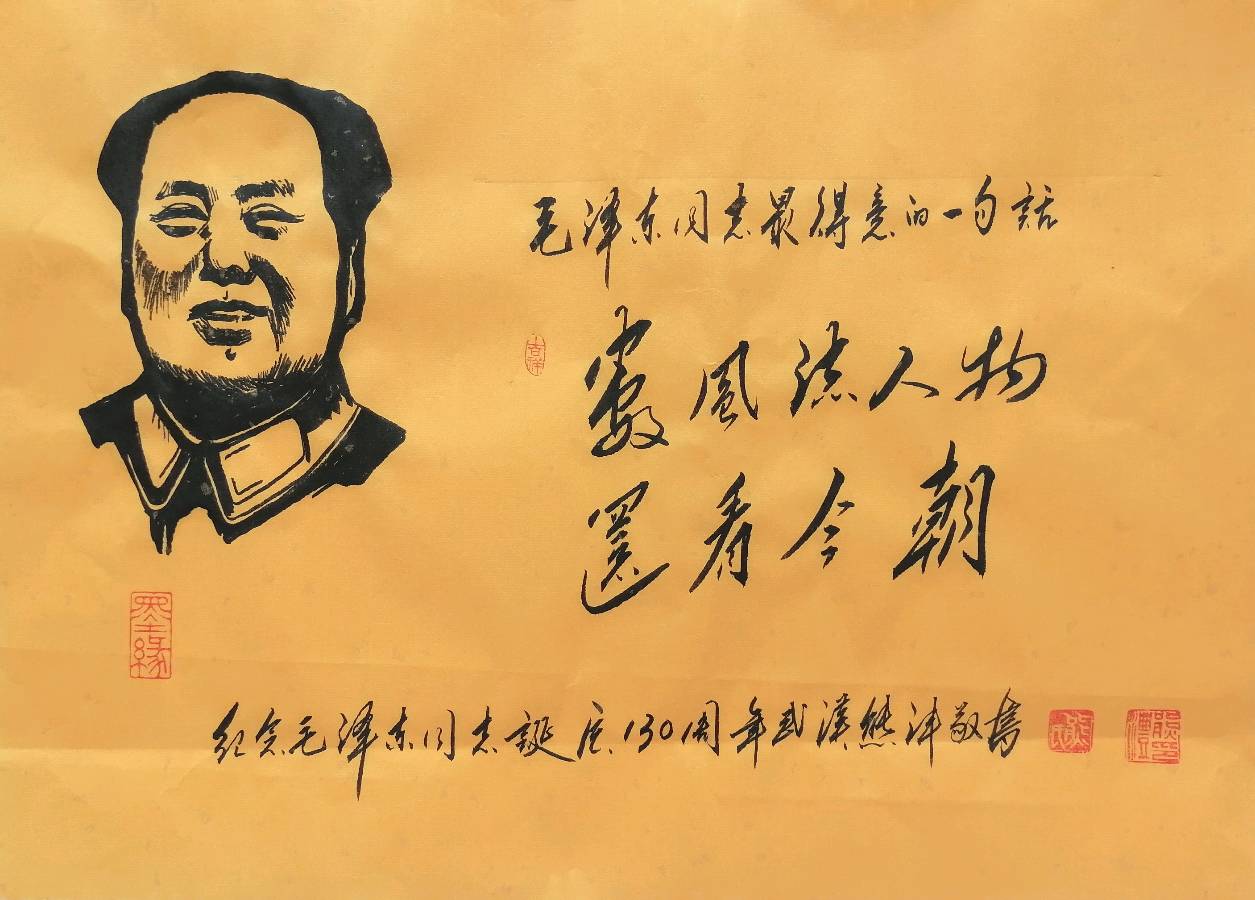 毛澤东同志最得意的一句話
數風流人物
還看今朝
吉祥
墨緣
纪念毛澤东同志誕辰130周年武漢熊敬書